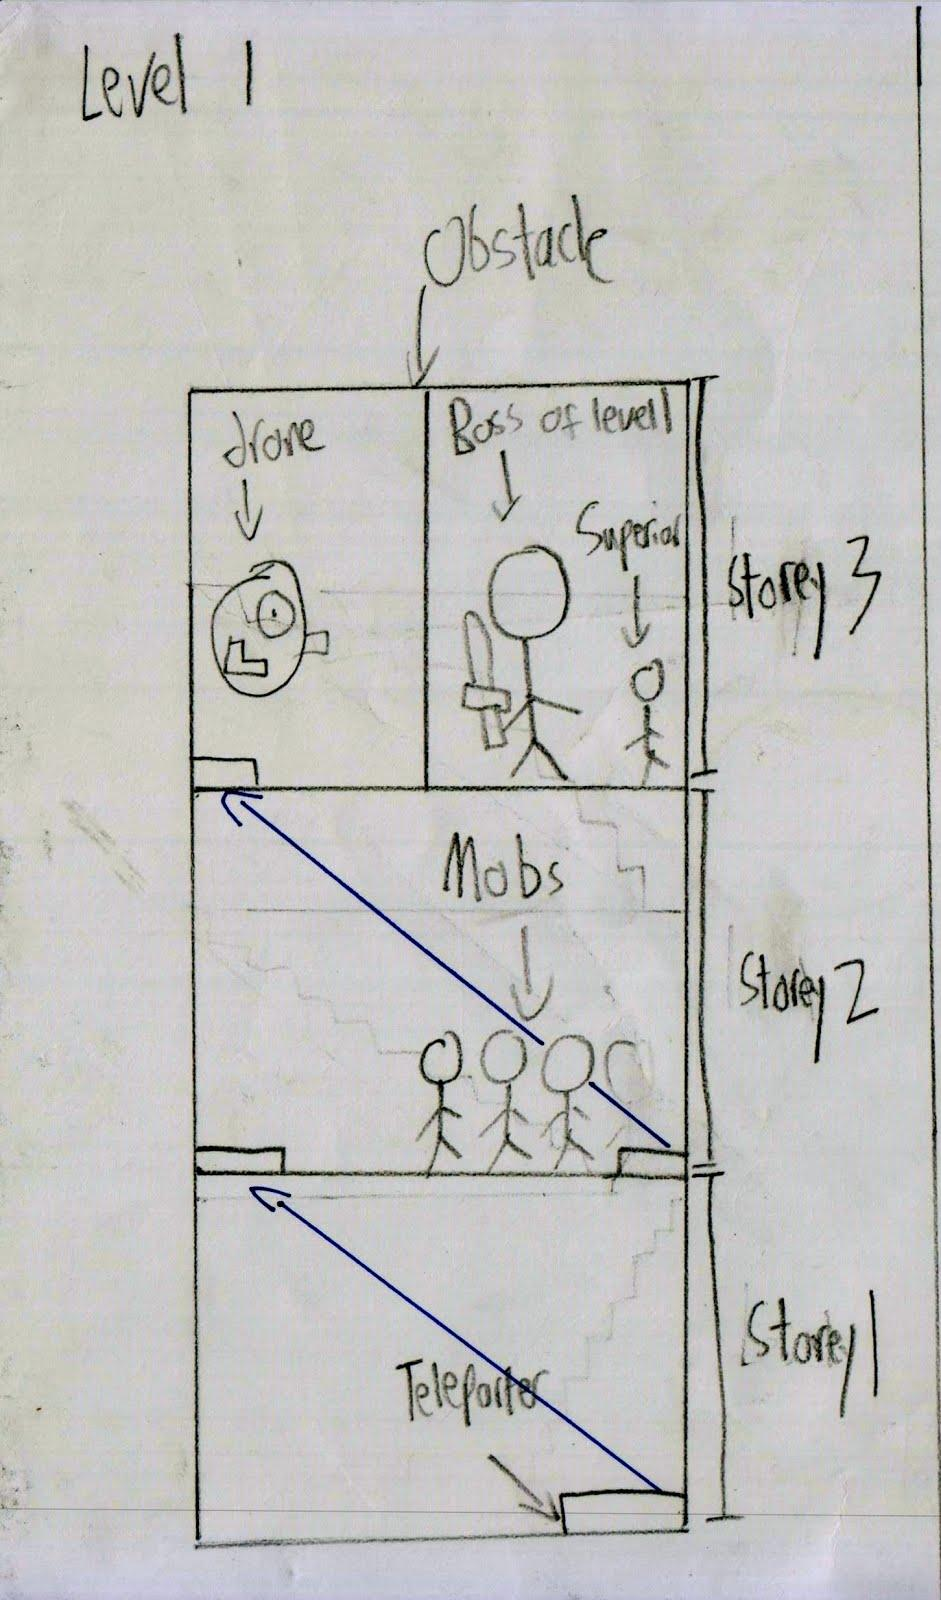 Level 1
Obstacle
drone
Boss of level 1
Superior
Storey 3
Mobs
Storey 2
Teleporter
Storey 1